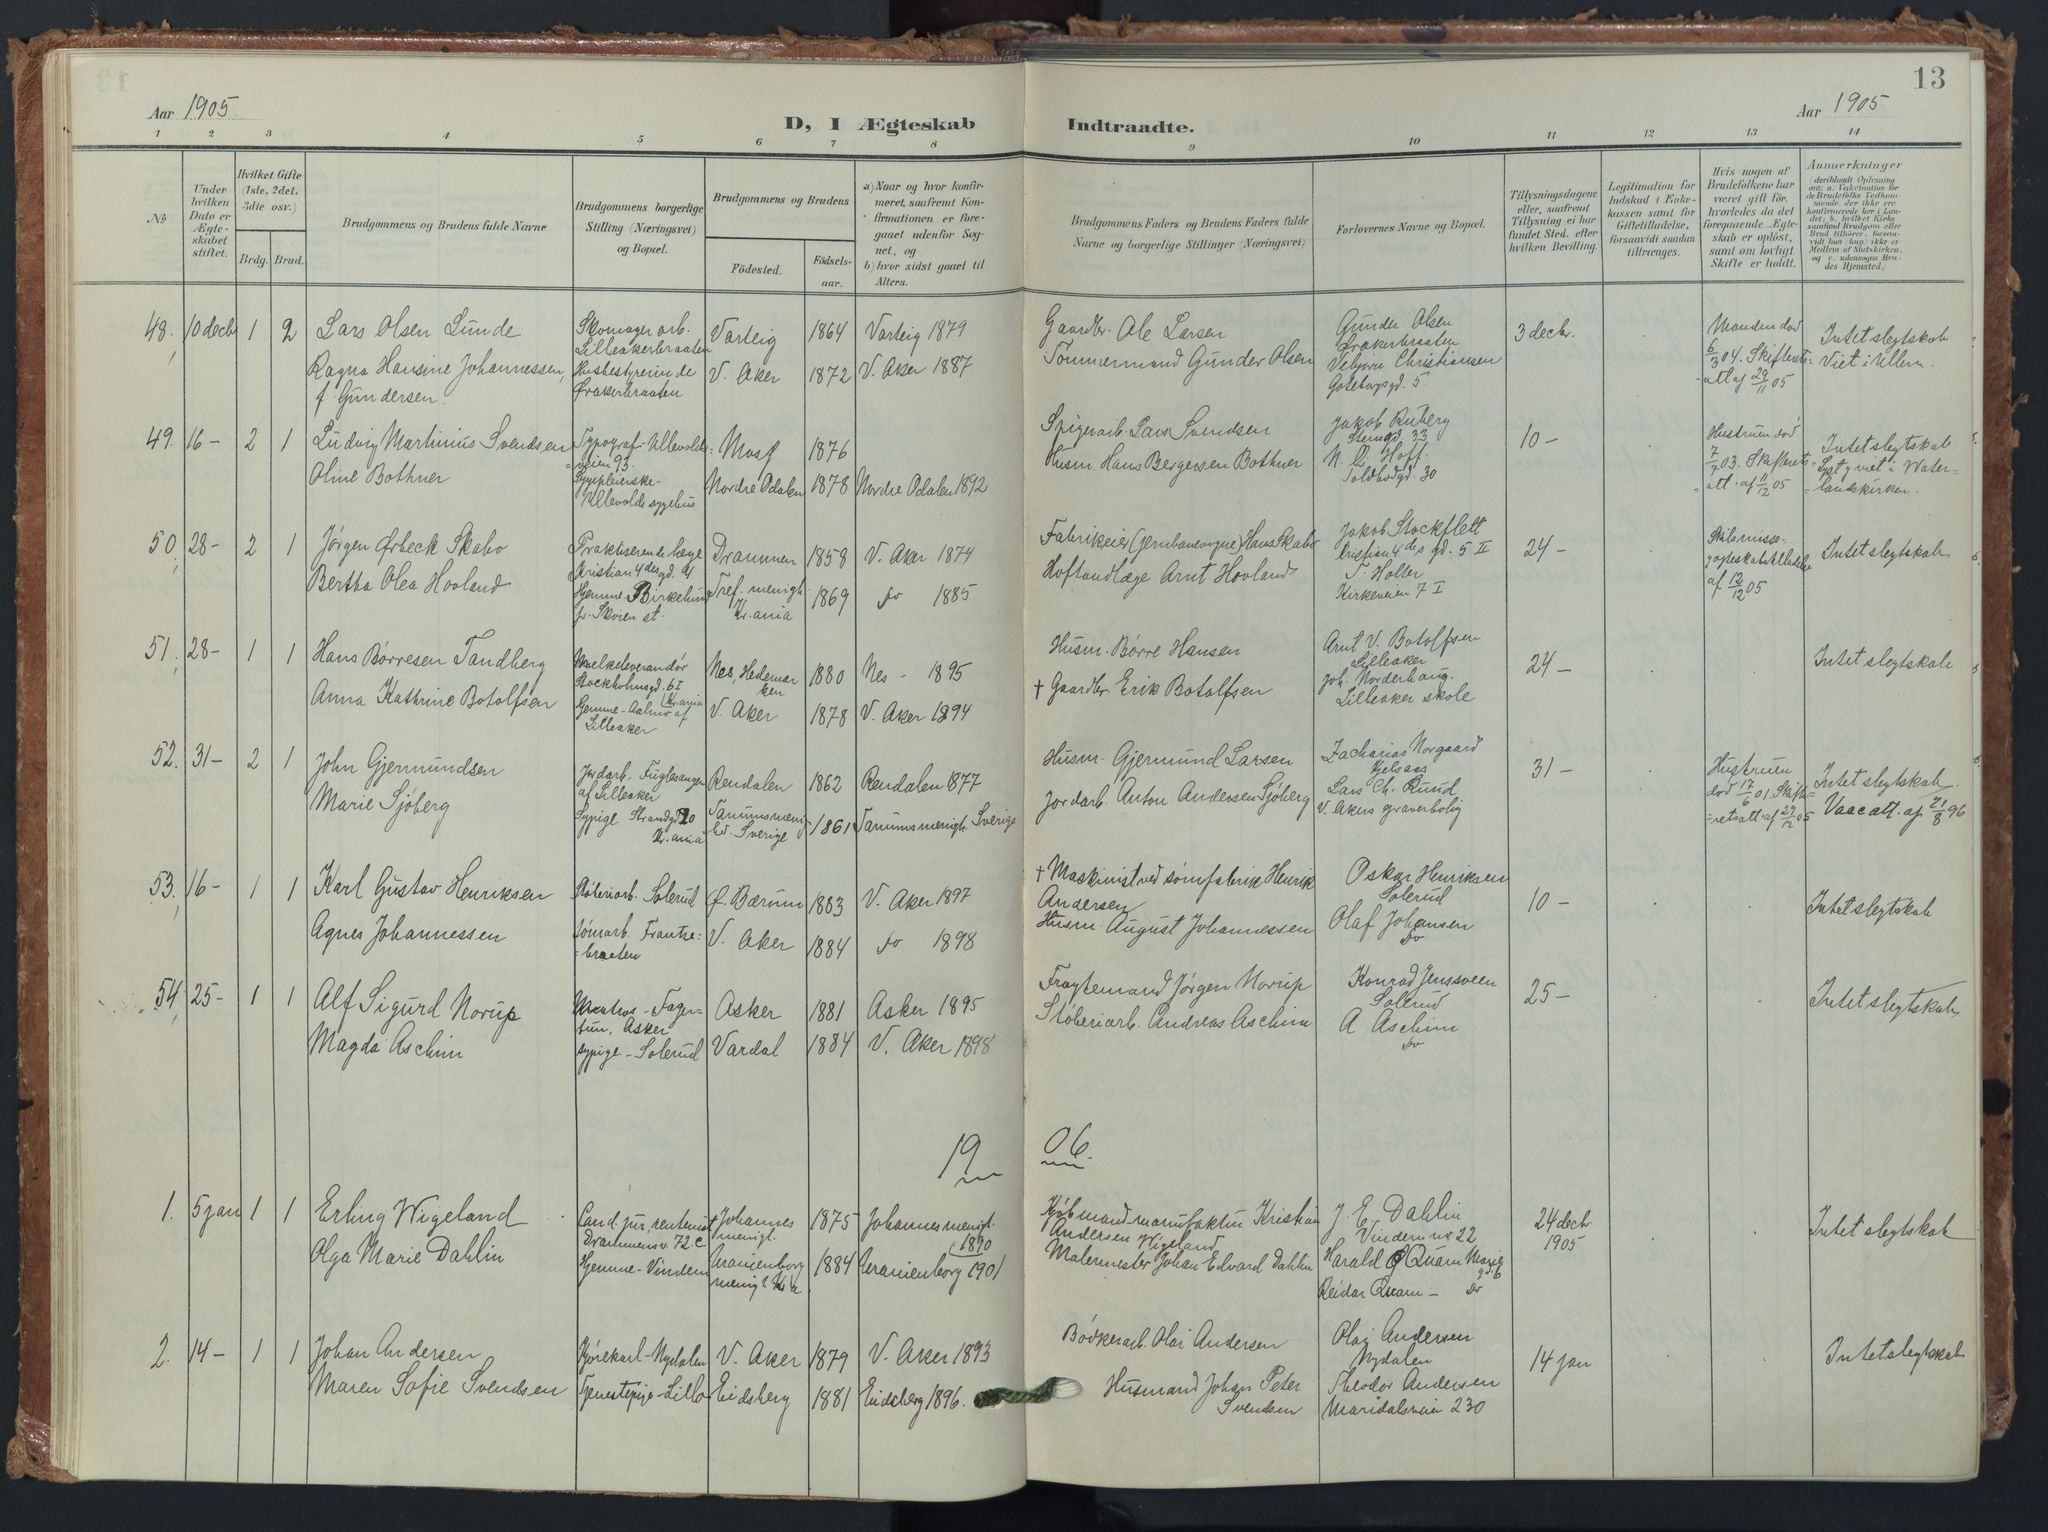 13
Aar 1905
D, I Ægteskab Indtraadte.
Aar 1905
1 2 3 4 5 6 7 8 9 10 11 12 13 14
No
Under hvilken Dato er Ægteskabet stiftet.
Hvilket Gifte (1ste, 2det, 3die osv.)
Brdg. Brud.
Brudgommens og Brudens fulde Navne
Brudgommens borgerlige Stilling (Næringsvei) og Bopæl.
Brudgommens og Brudens
Fødested.
Fødselsaar.
a) Naar og hvor konfirmeret, saafremt Konfirmationen er foregaaet udenfor Sognet, og
b) hvor sidst gaaet til Alters.
Brudgommens Faders og Brudens Faders fulde Navne og borgerlige Stillinger (Næringsvei)
Forlovernes Navne og Bopæl.
Tillysningsdagene eller, saafremt Tillysning ei har fundet Sted, efter hvilken Bevilling.
Legitimation for Indskud i Enkekassen samt for Giftetilladelse, forsaavidt saadan tiltrænges.
Hvis nogen af Brudefolkene har været gift før, hvorledes da det foregaaende Ægteskab er opløst, samt om lovligt Skifte er holdt.
Anmærkninger (deriblandt Oplysning om: a. Vakcination for de Brudefolks Vedkommende, der ikke ere konfirmerede her i Landet; b. hvilket Kirkesamfund Brudgom eller Brud tilhører, forsaavidt han (hun) ikke er Medlem af Statskirken, og c. udensogns Brudes Hjemsted.)
48. 10 decbr 1 2 Lars Olsen Lunde
Skomager arb. Lilleakerbraaten
Varteig 1864 Varteig 1879
Gaardbr. Ole Larsen
Gunder Olsen
Ørakerbraaten
3 decbr.
Manden død 6/3 04. Skifterets=
=att af 29/11 05
Intet slegtskab
Viet i Ullern.
Ragna Hansine Johannessen,
f. Gundersen.
Husbestyrerinde
Ørakerbraaten
V. Aker 1872 V. Aker 1887
Tømmermand Gunder Olsen
Vebjørn Christiansen
Gøteborgsgd. 5.
49. 16 - 2 1 Ludvig Martinius Svendsen
Typograf - Ullevolds=
=veien 93.
Moss 1876
Spigerarb. Lars Svendsen
Jakob Ruberg
Stensgd. 33
10 -
Hustruen død
7/7 03. Skifterets=
=att. af 11/12 05
Intet slegtskab
viet i Water=
=landskirken.
Oline Bothner
Sygepleierske -
Ullevolds sygehus
Nordre Odalen 1878 Nordre Odalen 1892
Husm. Hans Bergersen Bothner
N. C. Hoff.
Toldbodgd. 30
50. 28 - 2 1 Jørgen Ørbeck Skabo
Praktiserende læge
Kristian 4 des gd. 4
Drammen 1858 V. Aker 1874
Fabrikeier (jernbanevogne) Hans Skabo
Jakob Stockflett
Kristian 4 des gd. 5 II
24 -
af 12/12 05
Intet slegtskab
Bertha Olea Hovland
Hjemme Birkelund
pr. Skøien st.
Tref. menigh.
Kr.ania
1869 do 1885
Hoftandlæge Arnt Hovland
T. Holler
Kirkeveien 7 I
51. 28 - 1 1 Hans Børresen Tandberg
Melkeleverandør
Stockholmsgd. 6 I
Kr.ania
Nes, Hedemarken 1880 Nes - 1895
Husm. Børre Hansen
Arnt V. Botolfsen
Lilleaker
24 -
Intet slegtskab
Anna Kathrine Botolfsen
Hjemme - Aalmo af
Lilleaker
V. Aker 1878 V. Aker 1894
+ Gaardbr. Erik Botolfsen
Joh. Norderhaug.
Lilleaker skole
52. 31 - 2 1 John Gjermundsen
Jordarb. Fuglesangen
af Lilleaker
Rendalen 1862 Rendalen 1877
Husm. Gjermund Larsen
Zacharias Norgaard
Kjelsaas
31 -
Hustruen
død 17/6 01. Skifte=
=retsatt. af 27/12 05
Intet slegtskab
Vaccatt. af 21/8 96
Marie Sjøberg
Sypige Strandgd 20
Kr.ania
Tanumsmenighed. Sverige 1861 Tanumsmenigh. Sverige
Jordarb. Anton Andersen Sjøberg
Lars Ch. Ruud
V. Akers graverbolig
53. 16 - 1 1 Karl Gustav Henriksen
Støberiarb. Sølerud
Ø. Bærum 1883 V. Aker 1897
+ Maskinist ved sømfabrik Henrik
Andersen
Oskar Henriksen
Sølerud
10 -
Intet slegtskab
Agnes Johannessen
Sømarb. Frantze=
=braaten
V. Aker 1884 do 1898
Husm. August Johannessen
Olaf Johansen
do
54. 25 - 1 1 Alf Sigurd Norup
Matros - Fagertun, Asker
Asker 1881 Asker 1895
Fragtemand Jørgen Norup
Konrad Jenssveen
Sølerud
25 -
Intet slegtskab
Magda Aschim
sypige - Sølerud
Vardal 1884 V. Aker 1898
Støberiarb. Andreas Aschim
A Aschim
do
19 06.
1. 5 jan 1 1 Erling Wigeland
Cand. jur., rentenist
Drammensv. 72 c.
Johannes menigh.
1875 Johannes menigh. 1890
Kjøbmand - manufaktur Kristian
Andersen Wigeland
J. E. Dahlin
Vindern no 22
24 decbr
1905
Intet slegtskab
Olga Marie Dahlin
Hjemme - Vindern
Uranienborg menigh. Kr.a
1884 Uranienborg 1901
Malermester Johan Edvard Dahlin
Harald Quam
Reidar Quam - do
2. 14 - 1 1 Johan Andersen
Kjørekarl - Nydalen
V. Aker 1879 V. Aker 1893
Bødkerarb. Olai Andersen
Olai Andersen
Nydalen
14 jan
Intet slegtskab
Maren Sofie Svendsen
Tjenestepige - Lillo
Eidsberg 1881 Eidsberg 1896.
Husmand Johan Peter
Svendsen
Theodor Andersen
Maridalsveien 230